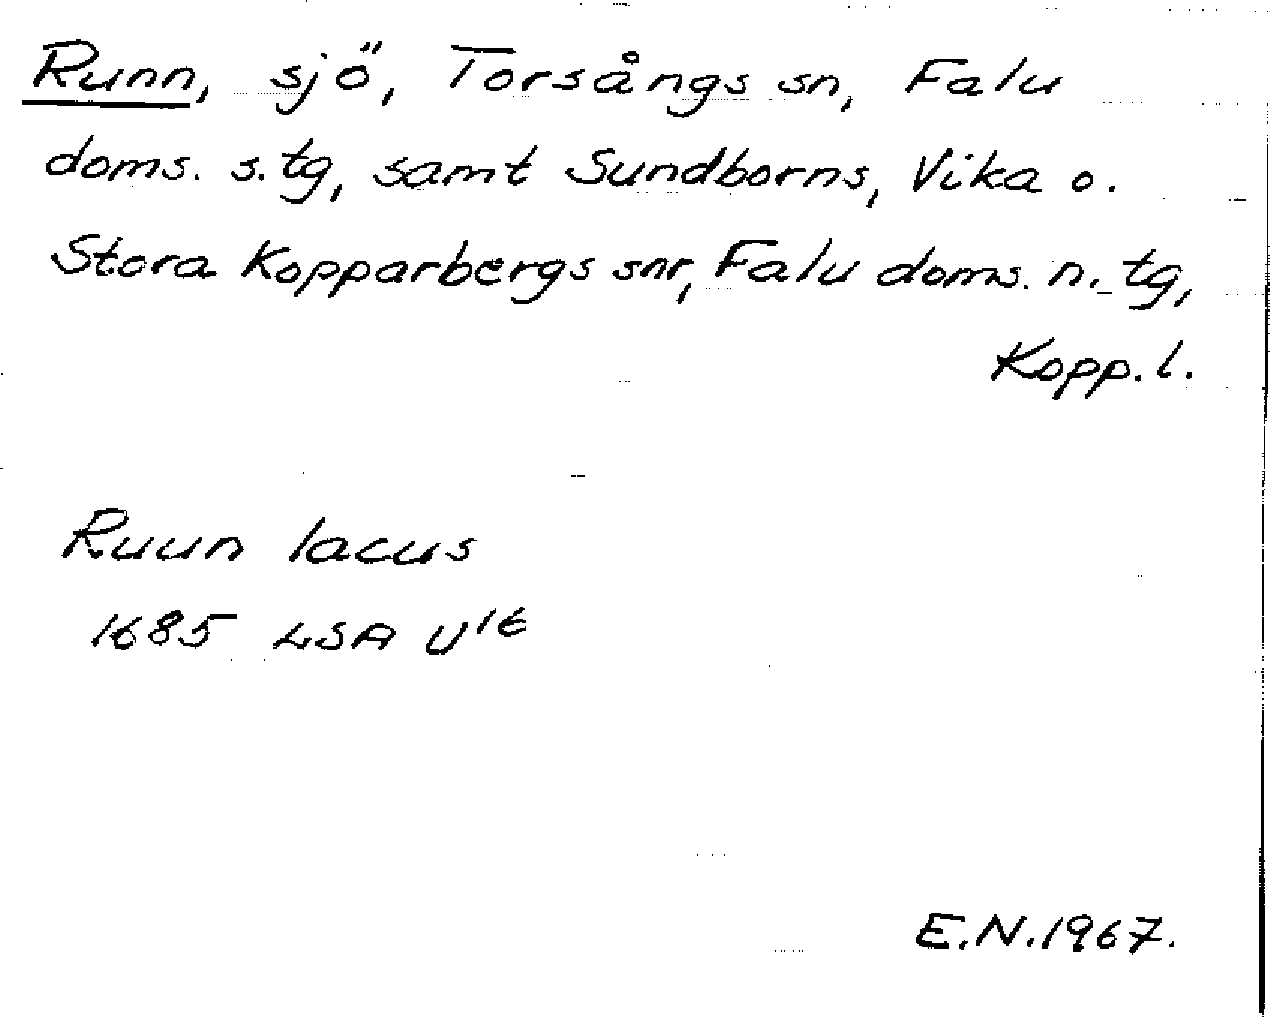 Runn, sjö, Torsångs sn, Falu
doms. s. tg, samt Sundborns, Vika o.
Stora Kopparbergs snr, Falu doms. n. tg,
Kopp. l.
Ruun lacus
1685 LSA U16
E.N. 1967.